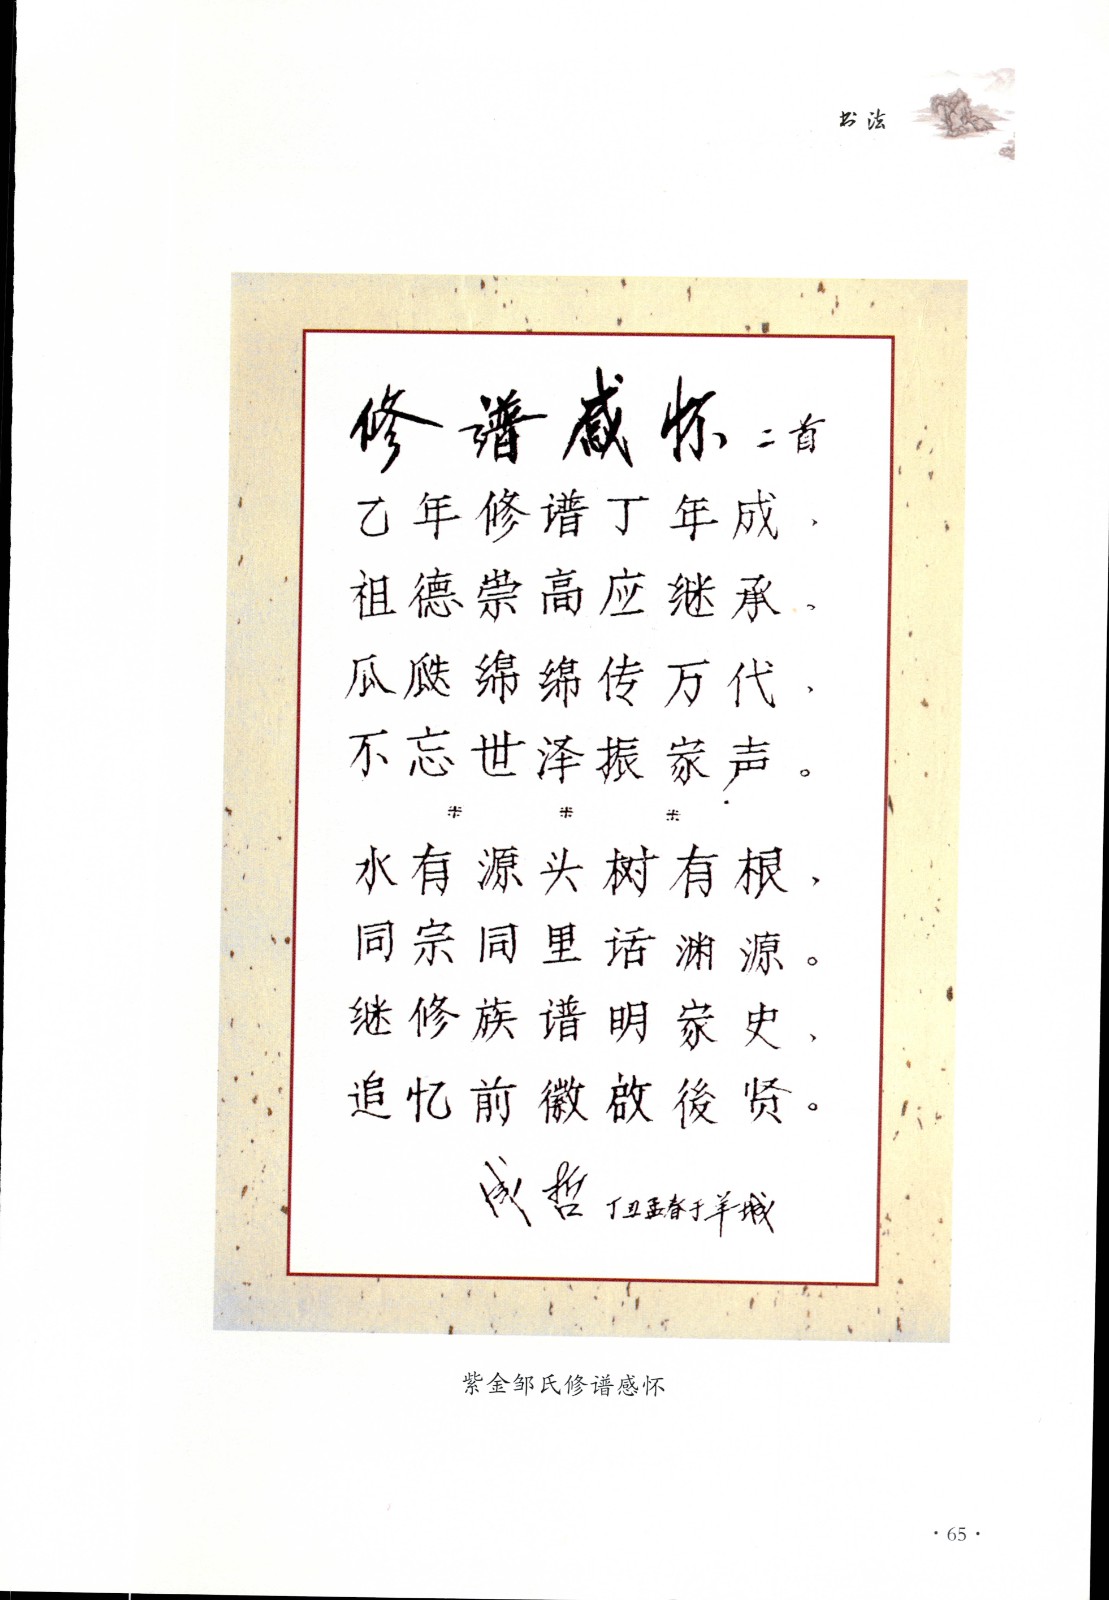 书法
修谱感怀 二首
乙年修谱丁年成，
祖德崇高应继承、
瓜瓞绵绵传万代，
不忘世泽振家声。
米 米 米
水有源头树有根，
同宗同里话渊源。
继修族谱明家史、
追忆前徽啟後贤。
成哲 丁丑孟春于羊城
紫金邹氏修谱感怀
·65·